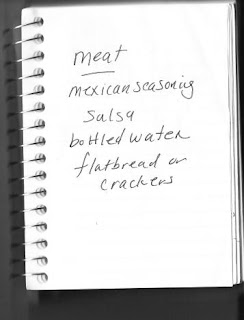 meat
mexican seasoning
salsa
bottled water
flatbread or
crackers